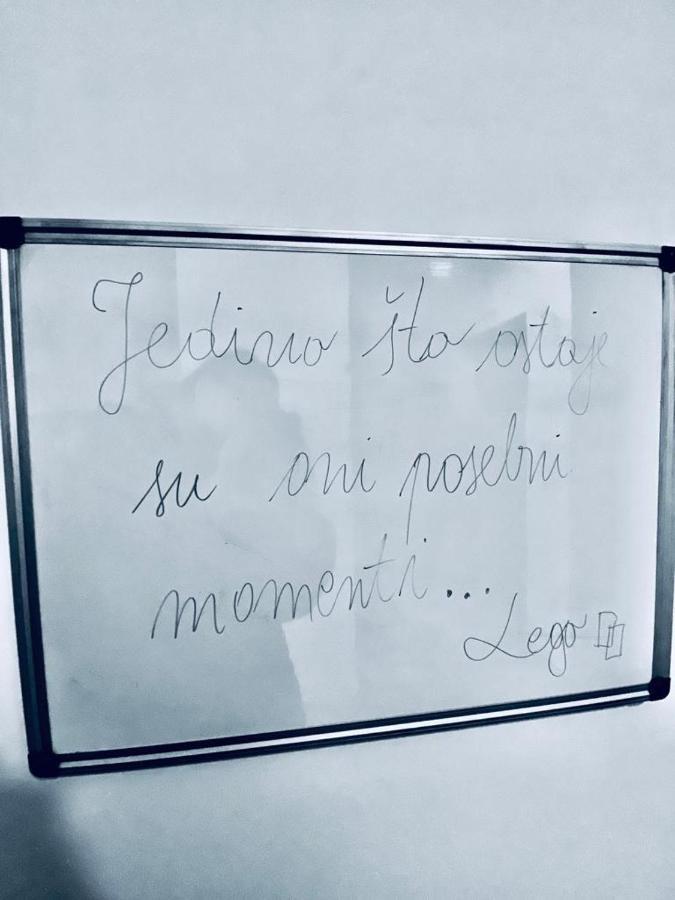 Jedino što ostaje
su oni posebni
momenti...
Lego